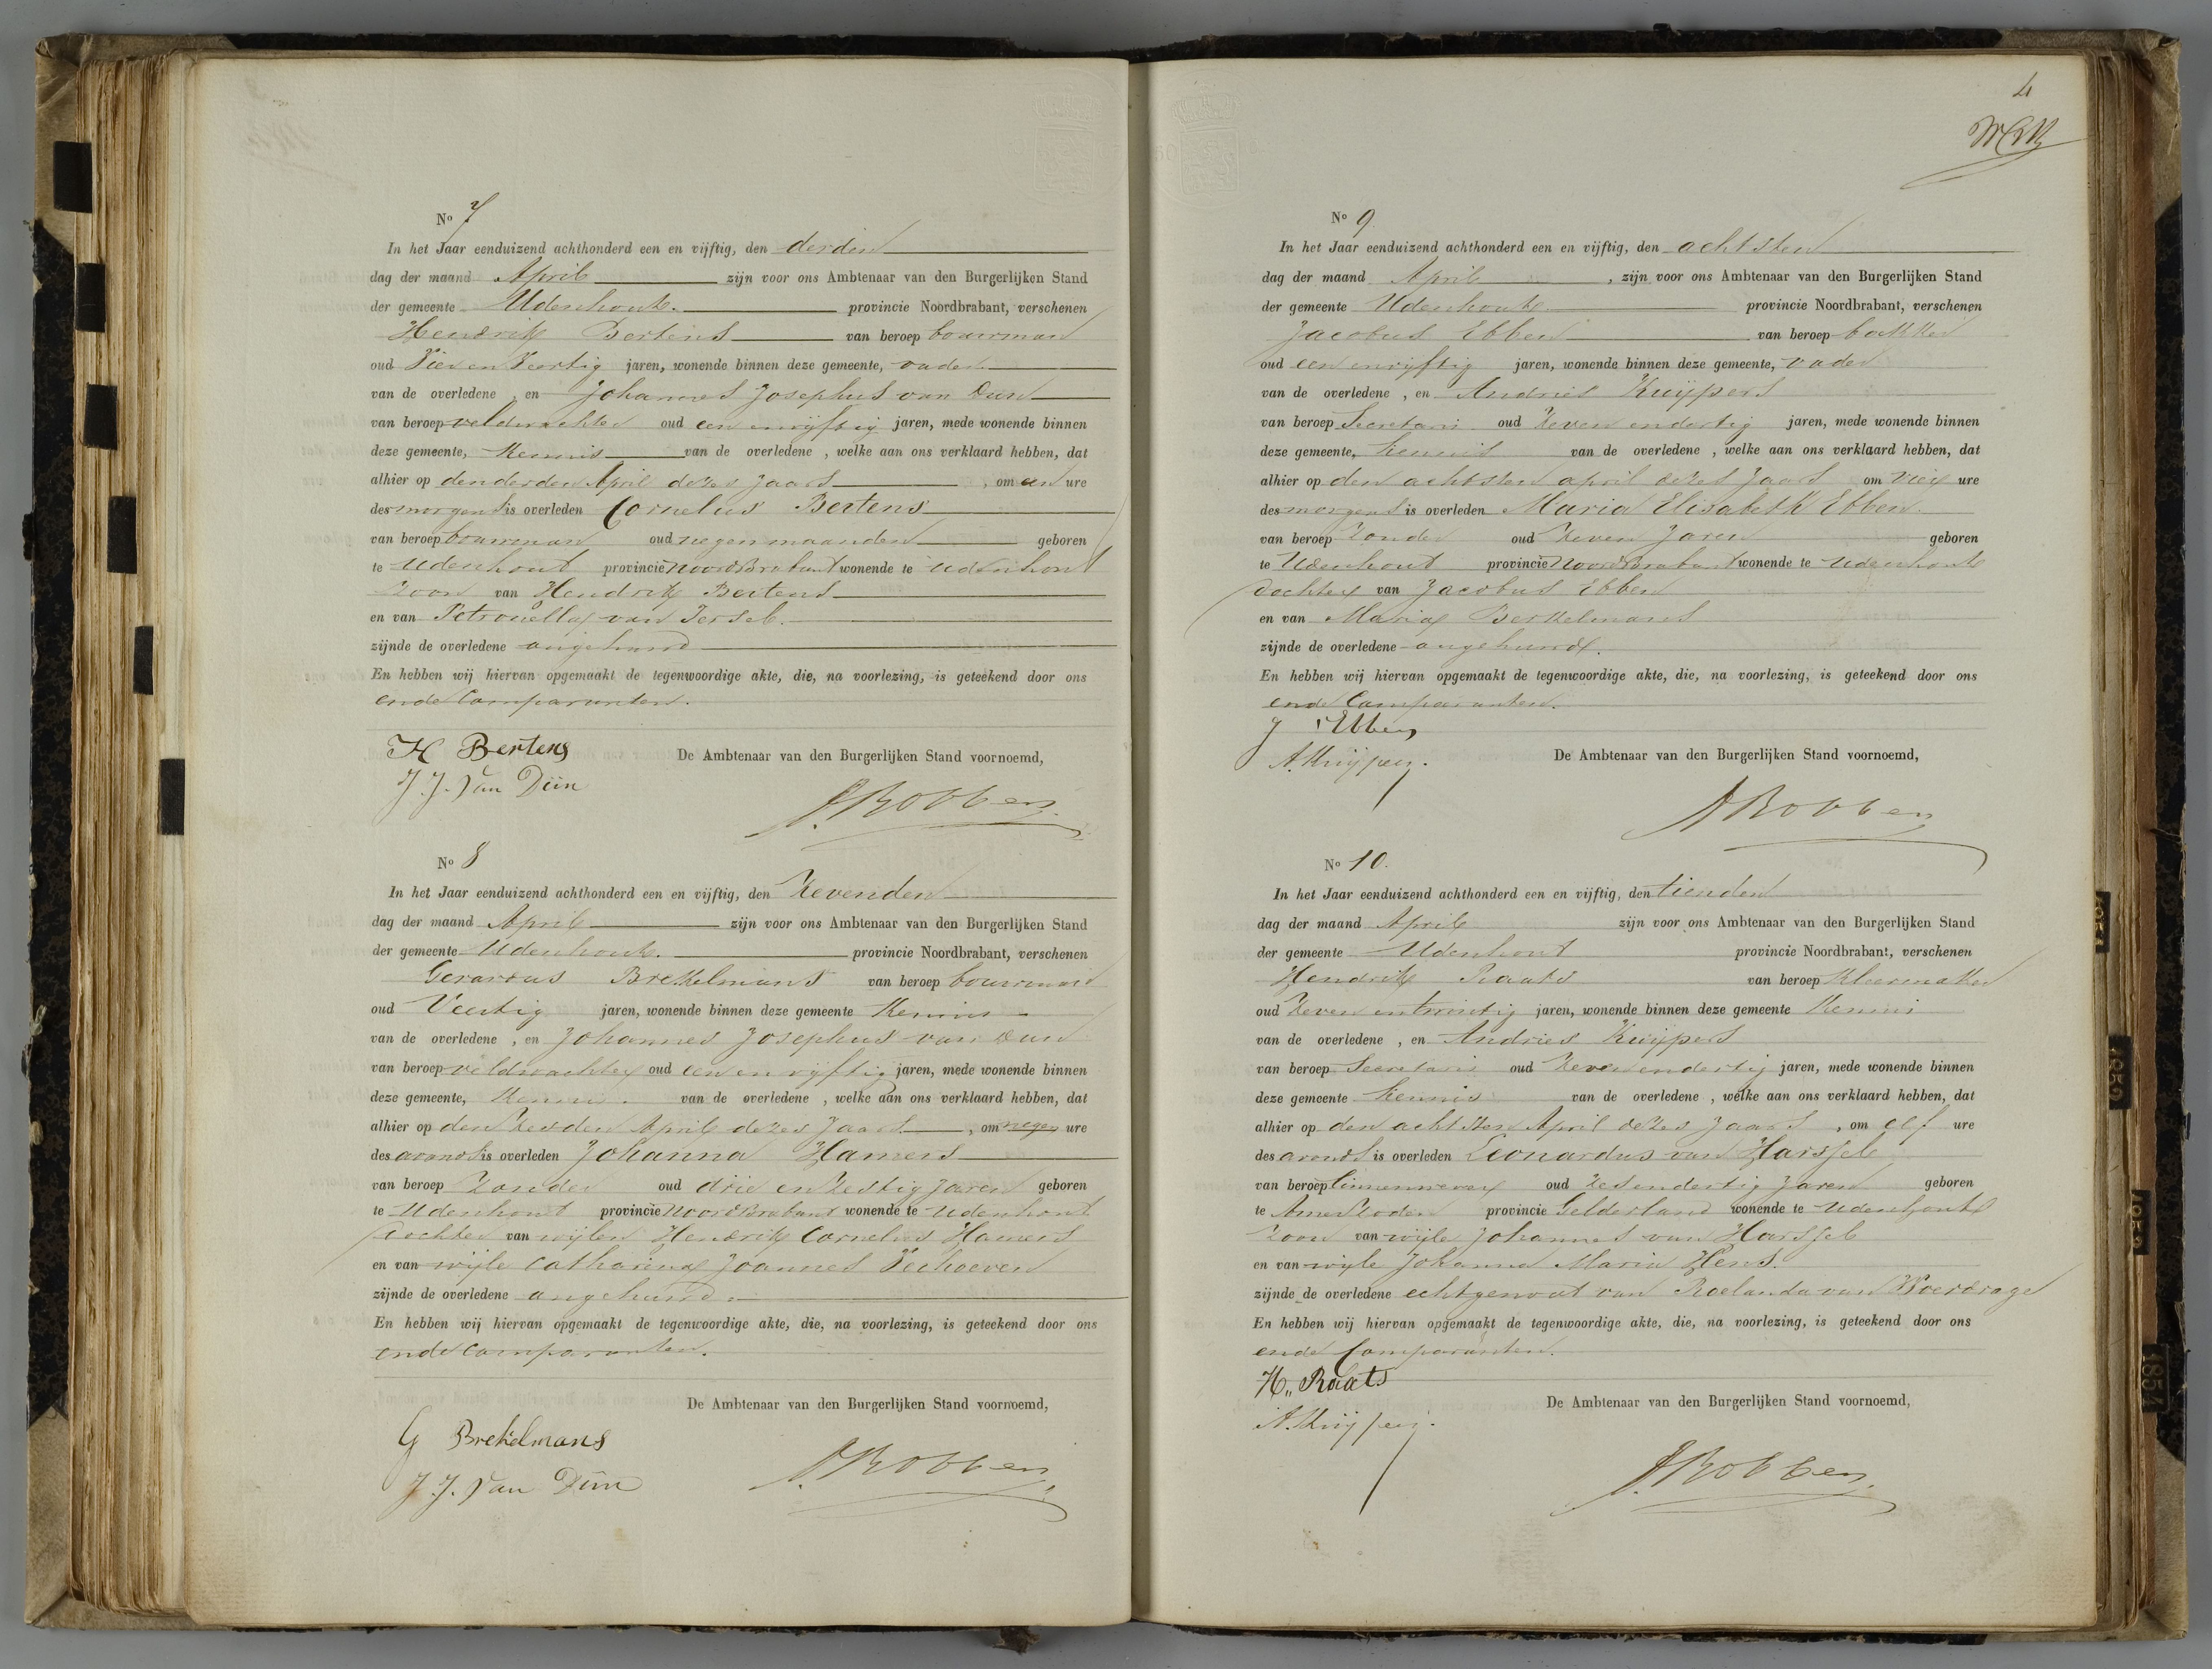 No 7
In het Jaar eenduizend achthonderd een en vijftig, den derden
dag der maand April zijn voor ons Ambtenaar van den Burgerlijken Stand
der gemeente Udenhout. provincie Noordbrabant, verschenen
Hendrik Bertens van beroep bouwman
oud Vier en Veertig jaren, wonende binnen deze gemeente, vader
van de overledene , en Johannes Josephus van Dun
van beroep veldwachter oud een en vijftig jaren, mede wonende binnen
deze gemeente, Kennis van de overledene , welke aan ons verklaard hebben, dat
alhier op den derden April dezes jaars , om een ure
des morgens is overleden Cornelus Bertens
van beroep bouwman oud negen maanden geboren
te Udenhout provincie NoordBrabant wonende te Udenhout
Zoon van Hendrik Bertens
en van Petronella van Iersel.
zijnde de overledene ongehuwd
En hebben wij hiervan opgemaakt de tegenwoordige akte, die, na voorlezing, is geteekend door ons
ende Comparanten.
H Bertens De Ambtenaar van den Burgerlijken Stand voornoemd,
J. J. Van Dün
Robben
No 8
In het Jaar eenduizend achthonderd een en vijftig, den Zevenden
dag der maand April zijn voor ons Ambtenaar van den Burgerlijken Stand
der gemeente Udenhout. provincie Noordbrabant, verschenen
Gerardus Brekelmans van beroep bouwman
oud Veertig jaren, wonende binnen deze gemeente Kennis
van de overledene , en Johannes Josephus van Dun
van beroep veldwachter oud een en vijftig jaren, mede wonende binnen
deze gemeente, Kennis. van de overledene , welke aan ons verklaard hebben, dat
alhier op den Zesden April dezes Jaars , om negen ure
des avonds is overleden Johanna Hamers
van beroep Zonder oud drie en Zestig Jaren geboren
te Udenhout provincie NoordBrabant wonende te Udenhout
dochter van wijlen Hendrik Cornelus Hamers
en van wijle Catharina Joannes Verhoeven
zijnde de overledene ongehuwd.
En hebben wij hiervan opgemaakt de tegenwoordige akte, die, na voorlezing, is geteekend door ons
ende Comparanten.
De Ambtenaar van den Burgerlijken Stand voornoemd,
G Brekelmans
J. J. Van Dün
Robben
4
No 9
In het Jaar eenduizend achthonderd een en vijftig, den achtsten
dag der maand April , zijn voor ons Ambtenaar van den Burgerlijken Stand
der gemeente Udenhout. provincie Noordbrabant, verschenen
Jacobus Ebben van beroep bakker
oud een en vijftig jaren, wonende binnen deze gemeente, vader
van de overledene , en Andries Kuijpers
van beroep Secretaris oud Zeven en dertig jaren, mede wonende binnen
deze gemeente, Kennis van de overledene , welke aan ons verklaard hebben, dat
alhier op den achtsten april dezes Jaars om vier ure
des morgens is overleden Maria Elisabeth Ebben.
van beroep Zonder oud Zeven Jaren geboren
te Udenhout provincie NoordBrabant wonende te Udenhout
dochter van Jacobus Ebben
en van Maria Berkelmans
zijnde de overledene ongehuwd.
En hebben wij hiervan opgemaakt de tegenwoordige akte, die, na voorlezing, is geteekend door ons
ende Comparanten.
J Ebben
A. Kuijpers. De Ambtenaar van den Burgerlijken Stand voornoemd,
Robben
No 10.
In het Jaar eenduizend achthonderd een en vijftig, den tienden
dag der maand April zijn voor ons Ambtenaar van den Burgerlijken Stand
der gemeente Udenhout provincie Noordbrabant, verschenen
Hendrik Raats van beroep Kleermaker
oud Zeven en twintig jaren, wonende binnen deze gemeente Kennis
van de overledene , en Andries Kuijpers
van beroep Secretaris oud Zeven en dertig jaren, mede wonende binnen
deze gemeente Kennis van de overledene , welke aan ons verklaard hebben, dat
alhier op den achtsten April dezes Jaars , om elf ure
des avonds is overleden Leonardus van Harssel
van beroep linnenwever oud Zes en dertig Jaren geboren
te AmerZoden provincie Gelderland wonende te Udenhout
Zoon van wijle Johannes van Harssel
en van wijle Johanna Maria Hens.
zijnde de overledene echtgenoot van Roelanda van Woerdrage
En hebben wij hiervan opgemaakt de tegenwoordige akte, die, na voorlezing, is geteekend door ons
ende Comparanten.
H,, Raats
De Ambtenaar van den Burgerlijken Stand voornoemd,
A. Kuijpers.
Robben
1854